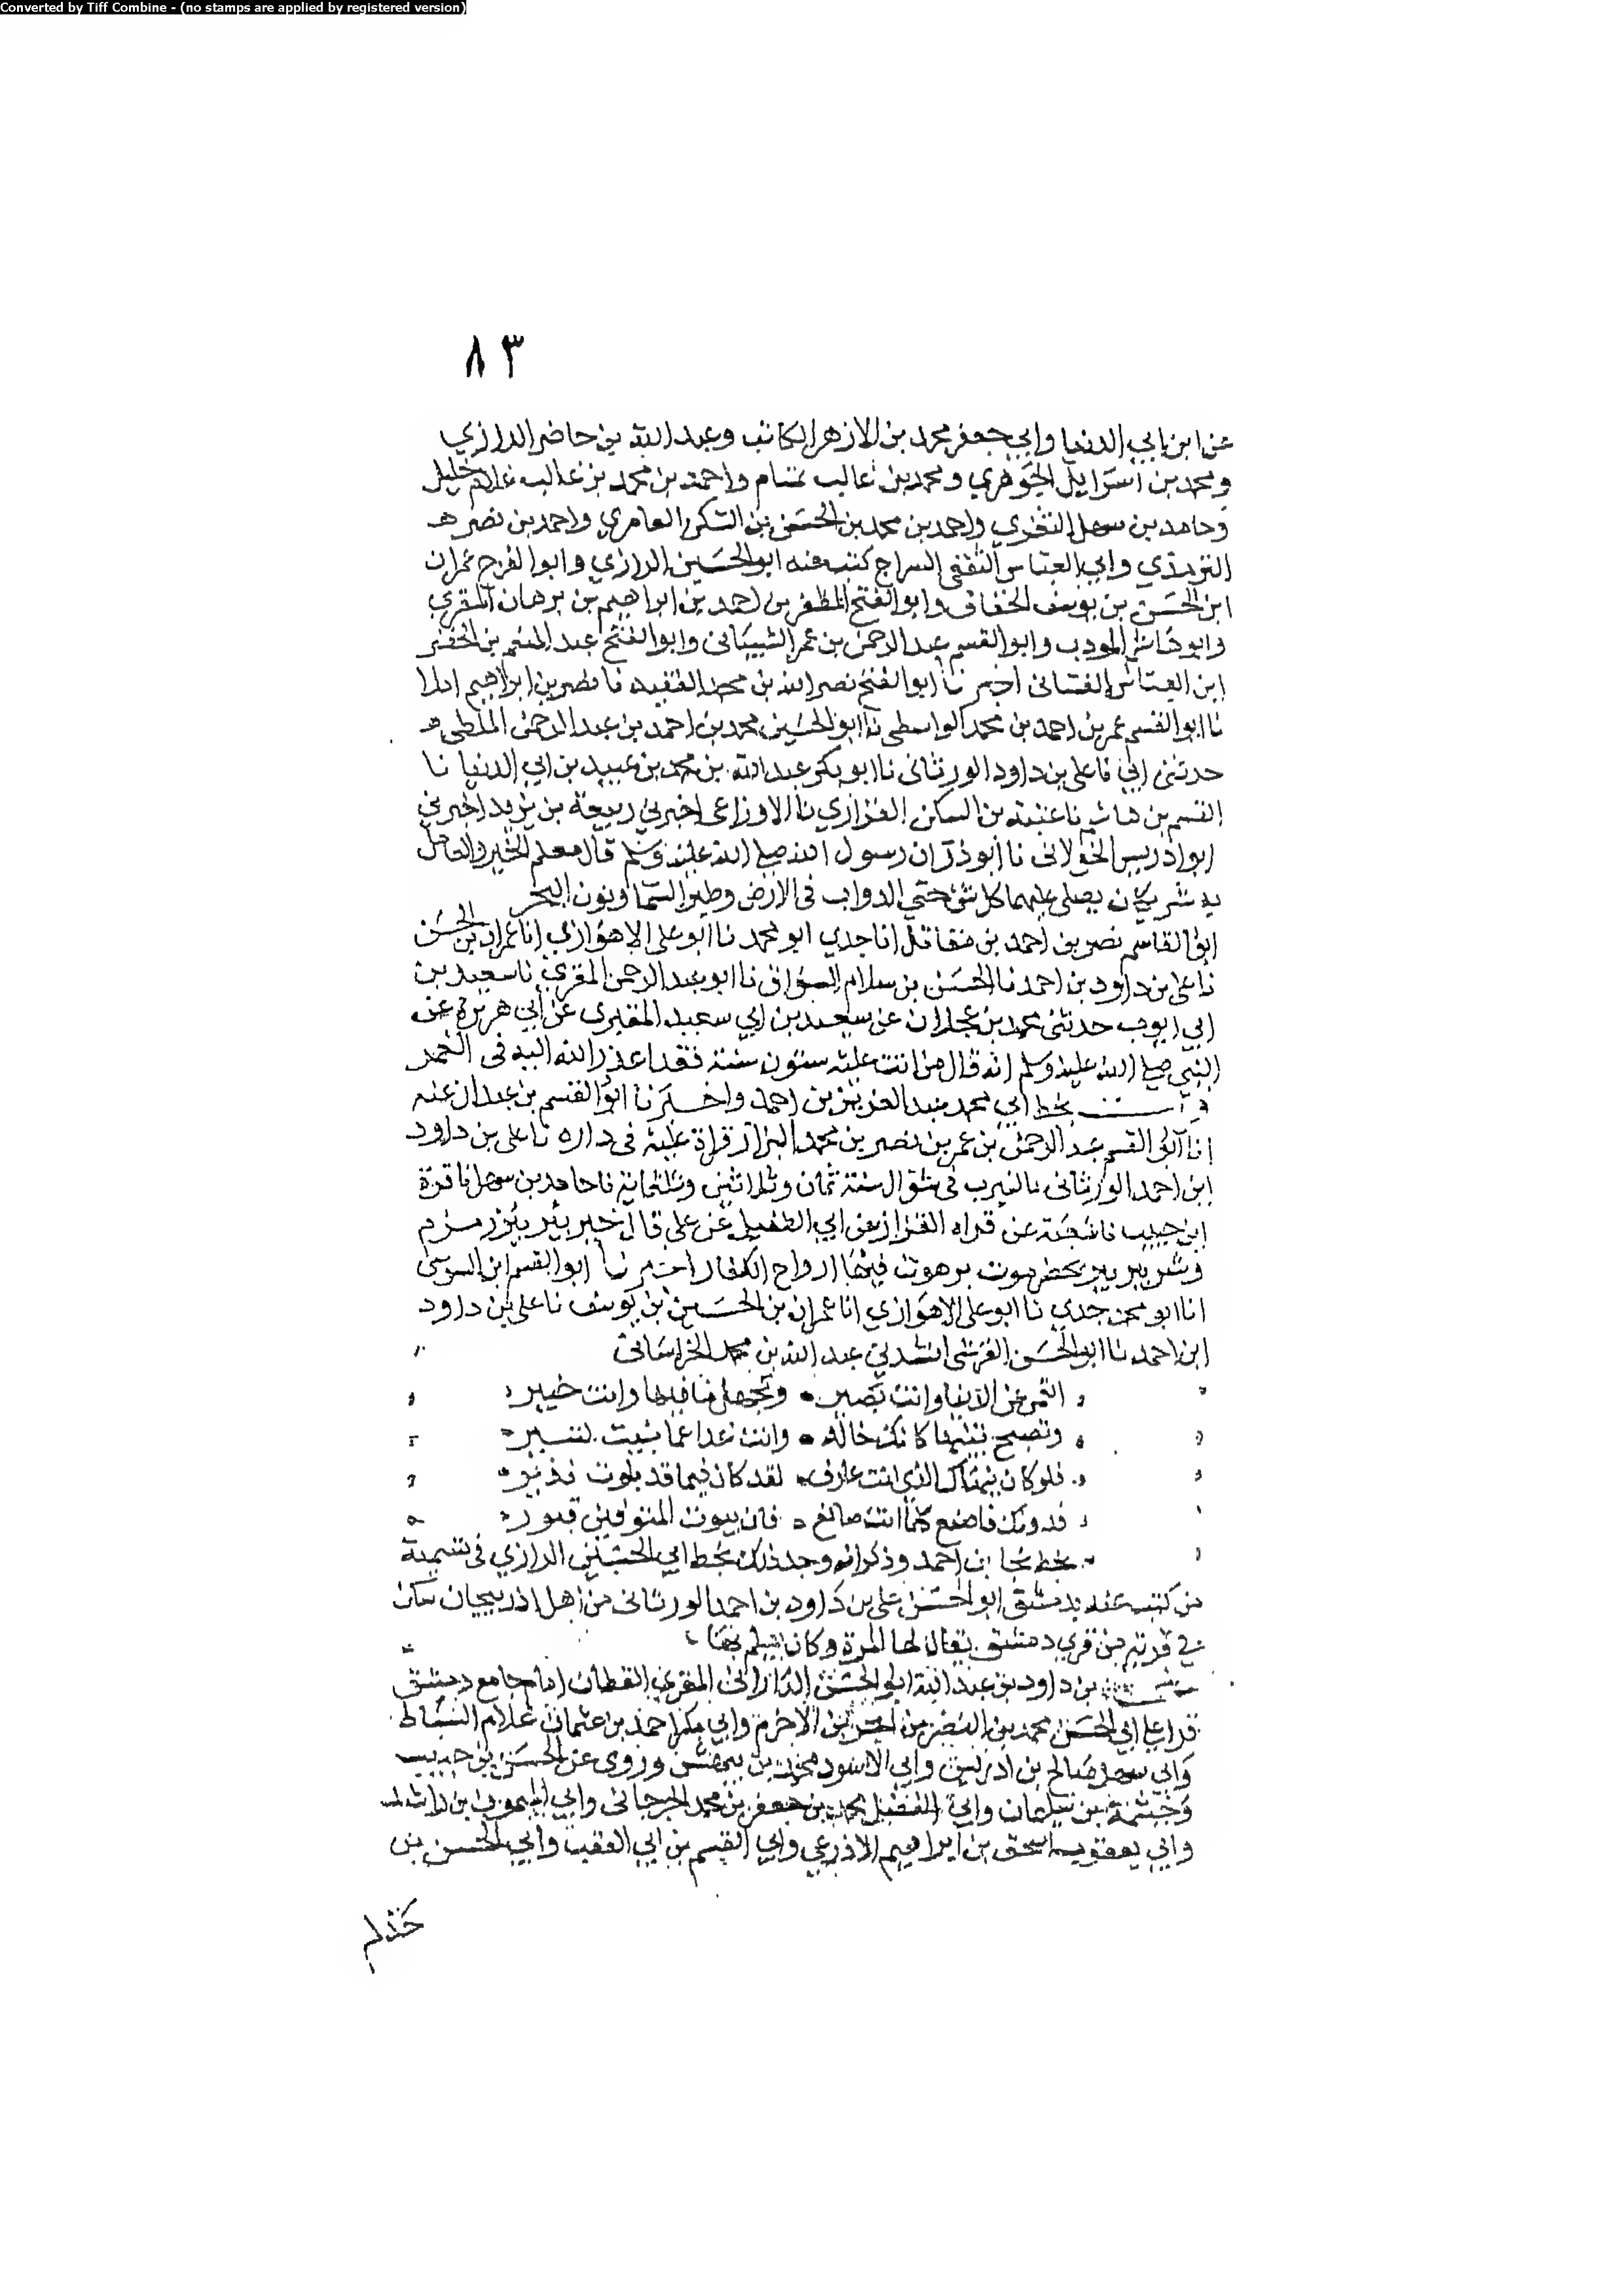 Converted by Tiff Combine - (no stamps are applied by registered version)
٨٣
عن ابن ابي الدنيا وابي جعفر محمد بن الازهر الكاتب وعبد الله بن حاضر الرازي
ومحمد بن اسرايل الجوهري ومحمد بن غالب تمتام واحمد بن محمد بن غالب غلام خليل
وحامد بن سهل الثغري واحمد بن محمد بن الحسن بن السكن العامري واحمد بن نصر
الترمذي وابي العباس الثقفي السراج كتب عنه ابو الحسين الرازي وابو الفرج عمران
ابن الحسن بن يوسف الخفاف وابو الفتح المظفر بن احمد بن ابراهيم بن برهان المقري
وابو هاشم المودب وابو القسم عبد الرحمن بن عمر الشيباني وابو الفتح عبد المنعم بن الخضر
ابن العباس الغساني اخبرنا ابو الفتح نصر الله بن محمد الفقيه نا نصر بن ابراهيم املا
نا ابو القسم عمر بن احمد بن محمد الواسطي نا ابو الحسين محمد بن احمد بن عبد الرحمن الملطي
حدثني ابي نا علي بن داود الورثاني نا ابو بكر عبد الله بن محمد بن عبيد بن ابي الدنيا نا
القسم بن هاشم نا عتبة بن السكن الفزاري نا الاوزاعي اخبرني ربيعة بن يزيد اخبرني
ابو ادريس الخولاني نا ابو ذر ان رسول الله صلى الله عليه وسلم قال معلم الخير والعامل
به شريكان يصلي عليهما كل شئ حتى الدواب في الارض وطير السما ونون البحر
ابو القاسم نصر بن احمد بن مقاتل انا جدي ابو محمد نا ابو علي الاهوازي انا عمران بن الحسن
نا علي بن داود بن احمد نا الحسن بن سلام السواق نا ابو عبد الرحمن المقري نا سعيد بن
ابي ايوب حدثني محمد بن عجلان عن سعيد بن ابي سعيد المقبري عن ابي هريرة عن
النبي صلى الله عليه وسلم انه قال من اتت عليه ستون سنة فقد اعذر الله اليه في العمر
قرات بخط ابي محمد عبد العزيز بن احمد واخبرنا ابو القسم بن عبدان عنه
انا ابو القسم عبد الرحمن بن عمر بن نصر بن محمد البزاز قراة عليه في داره نا علي بن داود
ابن احمد الورثاني بالنيرب في شوال سنة ثمان وثلاثين وثلثماية نا حامد بن سهل نا قرة
ابن حبيب نا شعبة عن فرات القزاز عن ابي الطفيل عن علي قال خير بير بير زمزم
وشر بير بير بحضرموت برهوت فيها ارواح الكفار اخبرنا ابو القسم ابن السوسي
انا ابو محمد جدي نا ابو علي الاهوازي انا عمران بن الحسين بن يوسف نا علي بن داود
ابن احمد نا ابو الحسن القرشي انشدني عبد الله بن محمد الخراساني
اتعمى عن الدنيا وانت بصير وتجهل ما فيها وانت خبير
وتصبح تبنيها كانك خالد وانت غدا عما بنيت تسير
فلو كان ينهاك الذي انت عارف لقد كان فيما قد بلوت نذير
فدونك فاصنع كلما انت صانع فان بيوت المترفين قبور
بخط نجا بن احمد وذكر انه وجد ذلك بخط ابي الحسين الرازي في تسمية
من كتب عنه بدمشق ابو الحسن علي بن داود بن احمد الورثاني من اهل اذربيجان سكن
في قرية من قرى دمشق يقال لها المزة وكان يعلم بها
بن داود بن عبد الله ابو الحسن الداراني المقري القطان امام جامع دمشق
قرا على ابي الحسن محمد بن النضر بن الاخرم وابي بكر احمد بن عثمان غلام السباك
وابي سهل صالح بن ادريس وابي الاسود محمد بن وروى عن الحسن بن حبيب
وخيثمة بن سليمان وابي الفضل محمد بن جعفر بن محمد الجرجاني وابي الميمون بن راشد
وابي يعقوب اسحق بن ابراهيم الاذرعي وابي القسم بن ابي العقب وابي الحسن بن
حذلم